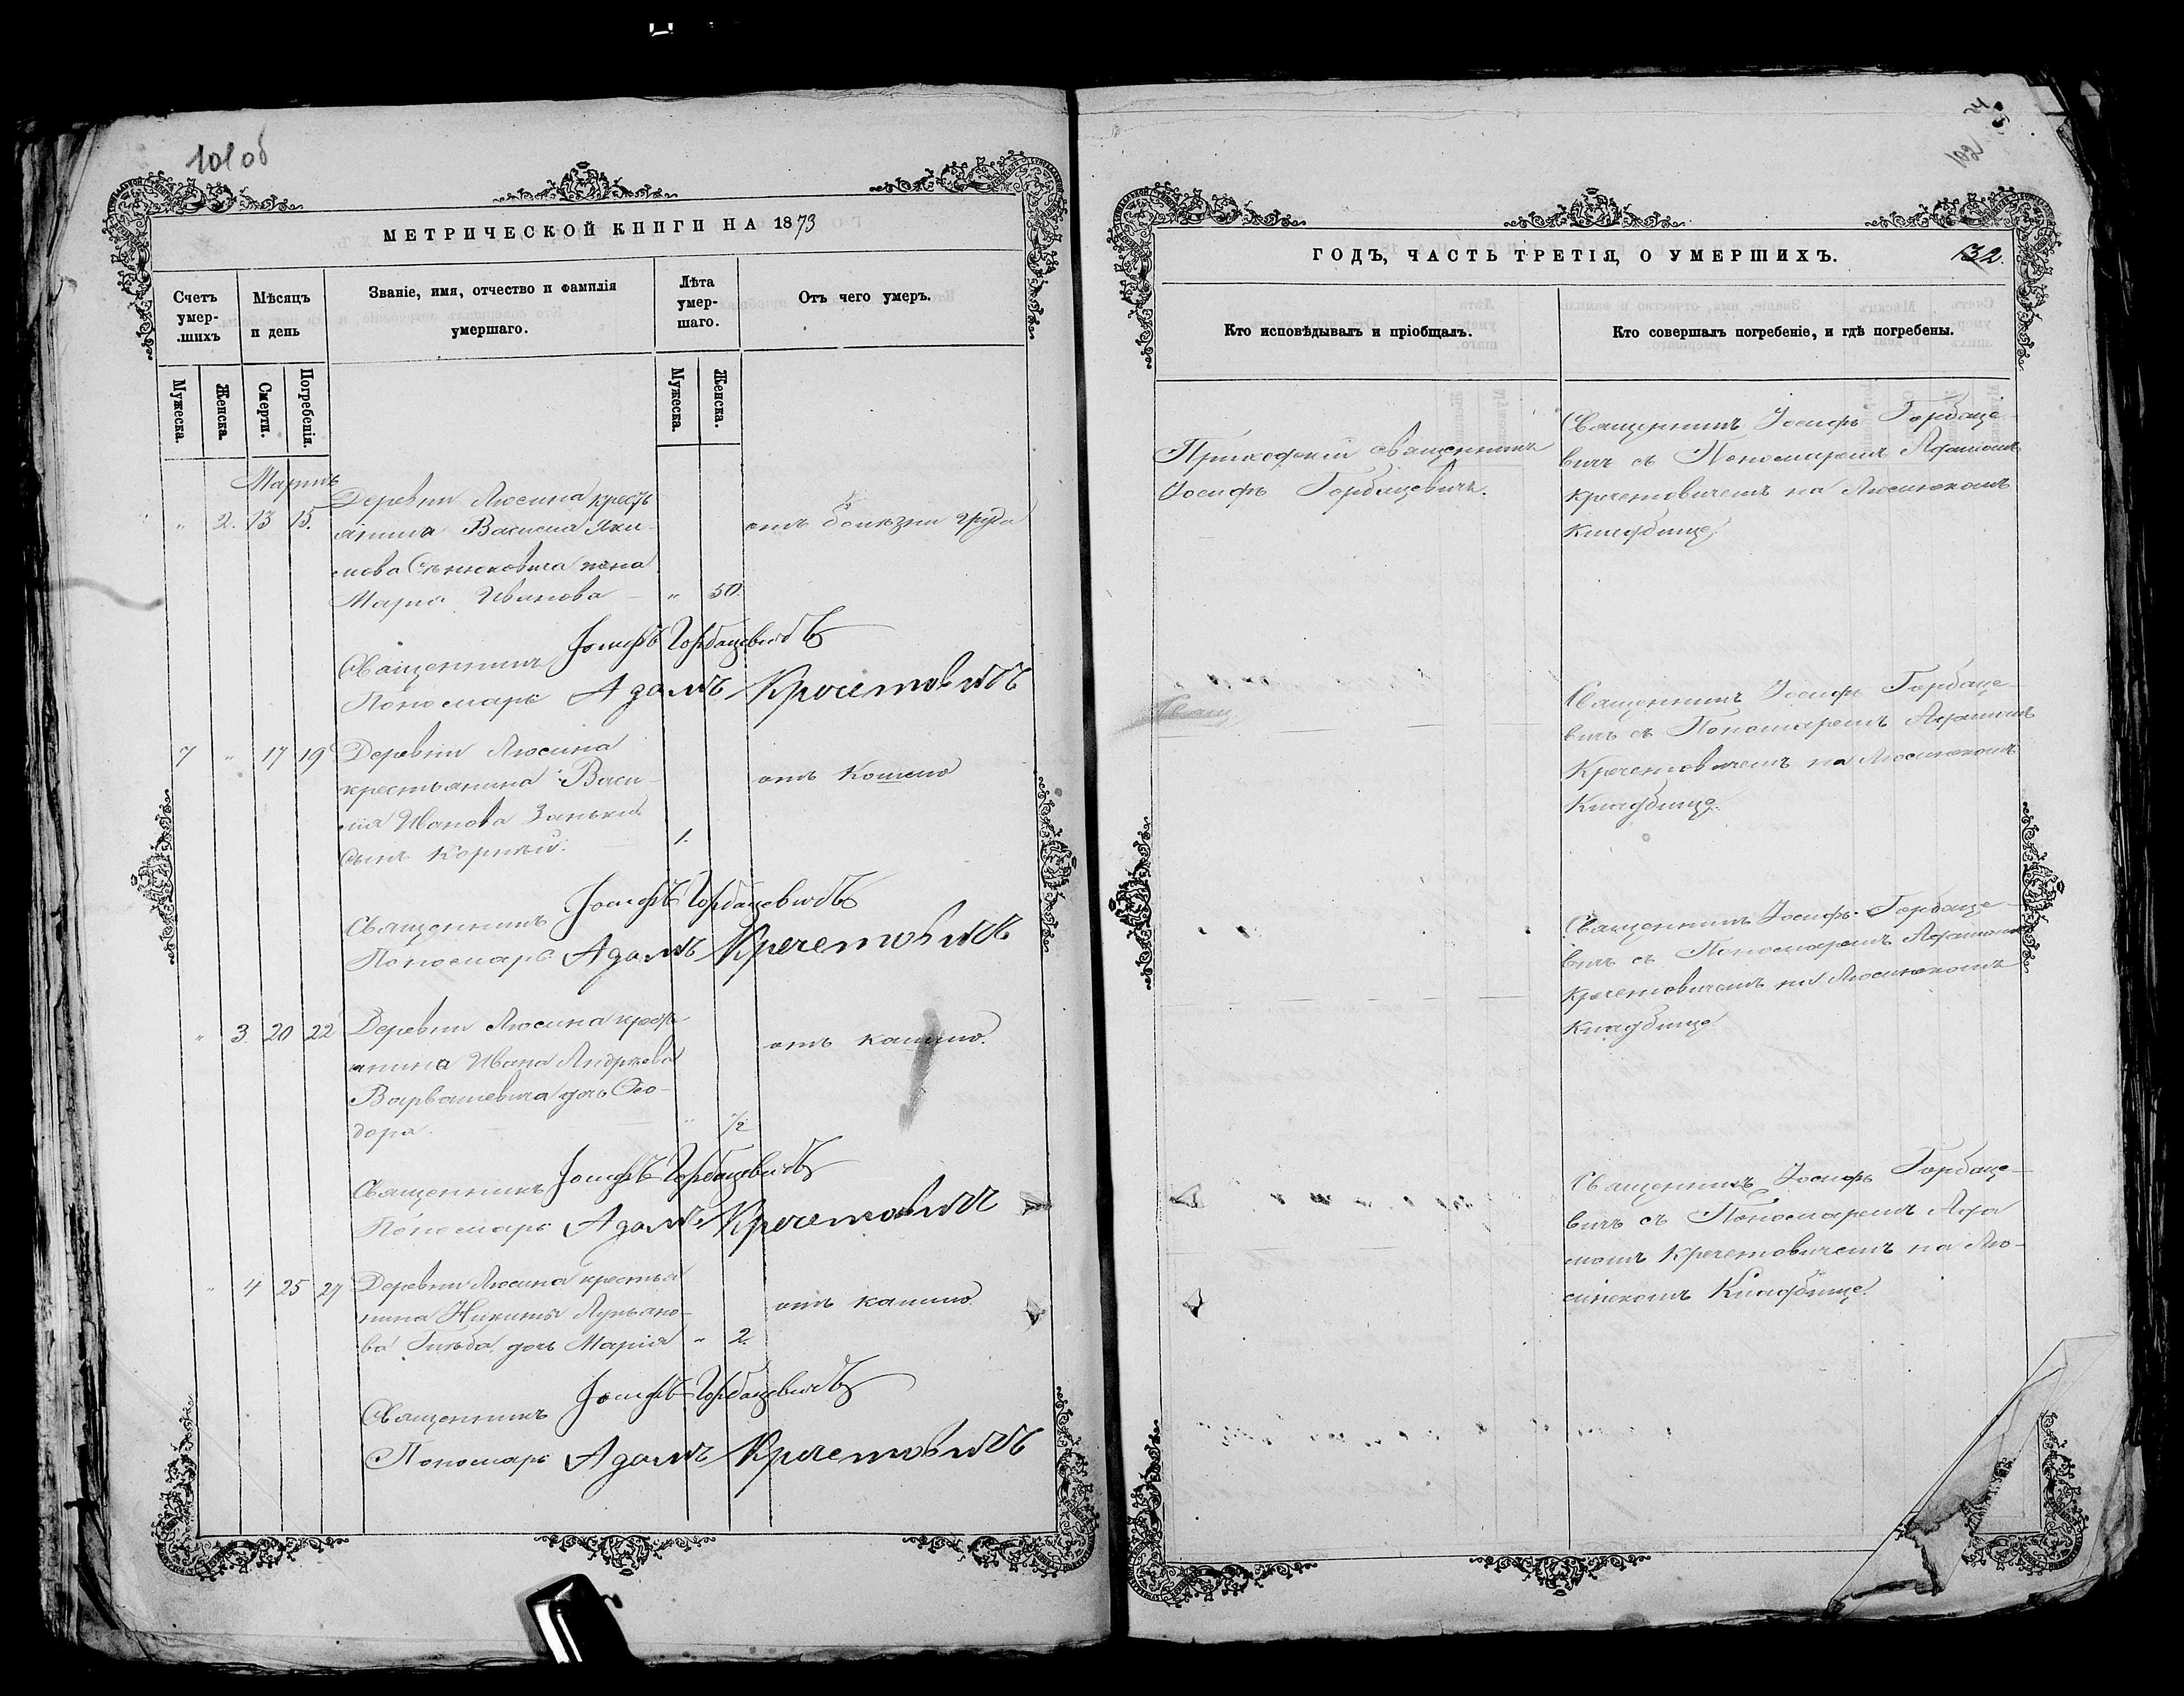 101 об
МЕТРИЧЕСКОЙ КНИГИ НА 1873
Счетъ умер-шихъ
Мѣсяцъ и день
Званіе, имя, отчество и фамилія умершаго.
Лѣта умер-шаго.
Отъ чего умеръ.
Мужеска.
Женска.
Смерти.
Погребенія.
Мужеска.
Женска.
Мартъ
" 2. 13 15.
Деревни Люсина крестъ
янина Василия Яки-
мова Сенюковича жена
Марiя Иванова " 50.
отъ болѣзни груди
Священникъ Іосифъ Горбацевичъ
Пономарь Адамъ Кречетовичъ
7 " 17 19
Деревни Люсина
крестьянина Васи-
лія Иванова Занько
сынъ Корнилій. 1.
отъ кашлю
Священникъ Іосифъ Горбацевичъ
Пономарь Адамъ Кречетовичъ
" 3 20 22
Деревни Люсина крест
янина Ивана Андреева
Варвашевича дочь Ѳео-
дора. " 1/2
отъ кашлю.
Священникъ Іосифъ Горбацевичъ
Пономарь Адамъ Кречетовичъ
" 4 25 27
Деревни Люсина крестья
нина Никиты Лукьяно-
ва дочь Марія " 2.
отъ кашлю
Священникъ Іосифъ Горбацевичъ
Пономарь Адамъ Кречетовичъ
ГОДЪ, ЧАСТЬ ТРЕТІЯ, О УМЕРШИХЪ.
132.
Кто исповѣдывалъ и пріобщалъ.
Кто совершалъ погребеніе, и гдѣ погребены.
Приходскій священникъ
Іосифъ Горбацевичъ.
Священникъ Іосифъ Горбаце-
вичъ съ Пономаремъ Адамомъ
Кречетовичемъ на Люсинскомъ
Кладбище.
Свящ.
Священникъ Іосифъ Горбаце-
вичъ съ Пономаремъ Адамомъ
Кречетовичемъ на Люсинскомъ
Кладбище.
Священникъ Іосифъ Горбаце-
вичъ съ Пономаремъ Адамомъ
Кречетовичемъ на Люсинскомъ
Кладбище
Священникъ Іосифъ Горбаце-
вичъ съ Пономаремъ Ада
момъ Кречетовичемъ на Лю-
синскомъ Кладбище.